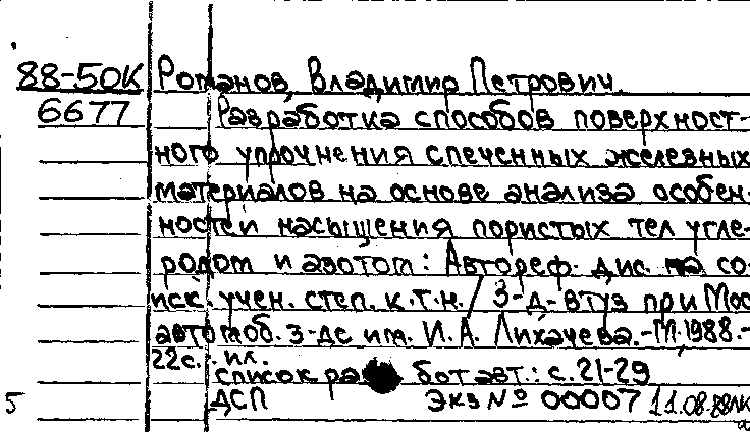 88-50К Романов, Владимир Петрович.
6677 Разработка способов поверхност-
ного упрочнения спеченных железных
материалов на основе анализа особен-
ностей насыщения пористых тел угле-
родом и азотом: Автореф. дис. на со-
иск. учен. степ. к.т.н. / З-д-втуз при Мос
автомоб. з-де им. И.А. Лихачева.-М,1988.-
22с.: ил.
список ра бот авт.: с.21-29
5 ДСП Экз № 00007 11.08.88